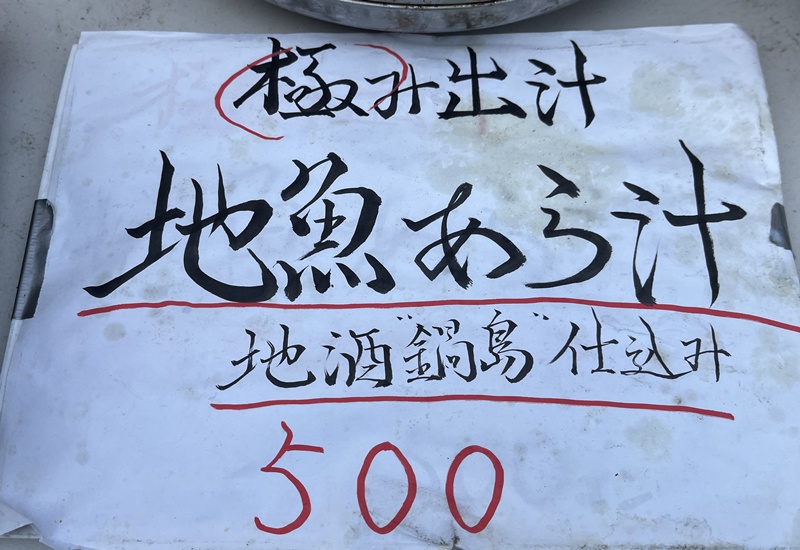 極み出汁
地魚あら汁
地酒"鍋島"仕込み
500